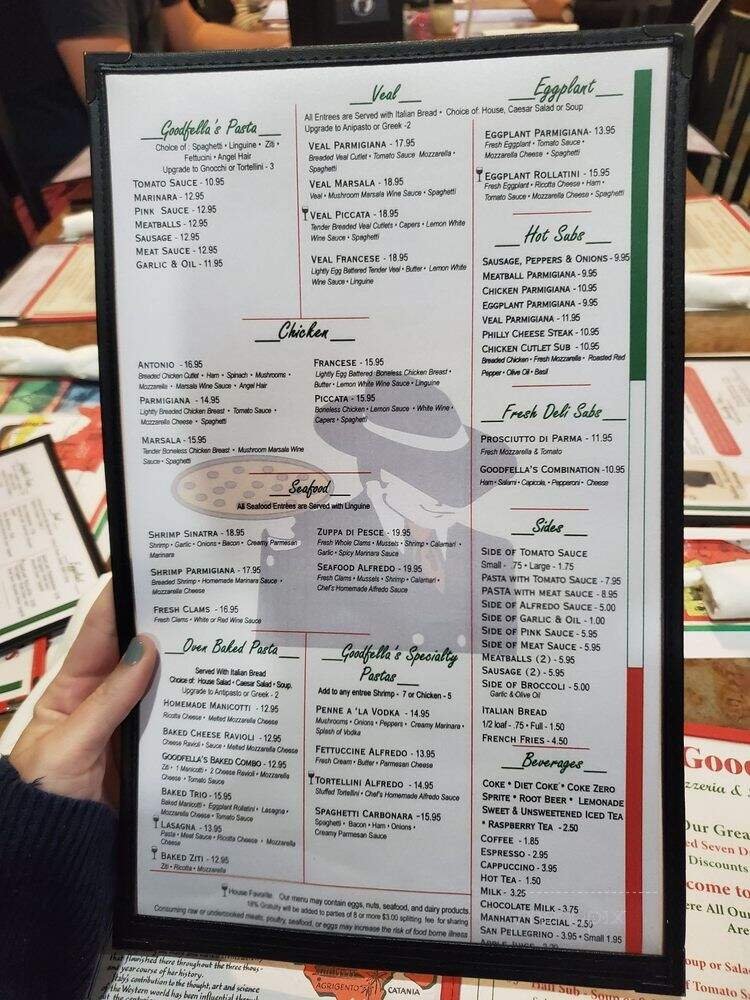 Goodfella's Pasta
Choice of: Spaghetti • Linguine • Ziti •
Fettucini • Angel Hair
Upgrade to Gnocchi or Tortellini - 3
TOMATO SAUCE - 10.95
MARINARA - 12.95
PINK SAUCE - 12.95
MEATBALLS - 12.95
SAUSAGE - 12.95
MEAT SAUCE - 12.95
GARLIC & OIL - 11.95
Veal
All Entrees are Served with Italian Bread • Choice of: House, Caesar Salad or Soup
Upgrade to Anipasto or Greek -2
VEAL PARMIGIANA - 17.95
Breaded Veal Cutlet • Tomato Sauce Mozzarella •
Spaghetti
VEAL MARSALA - 18.95
Veal • Mushroom Marsala Wine Sauce • Spaghetti
VEAL PICCATA - 18.95
Tender Breaded Veal Cutlets • Capers • Lemon White
Wine Sauce • Spaghetti
VEAL FRANCESE - 18.95
Lightly Egg Battered Tender Veal • Butter • Lemon White
Wine Sauce • Linguine
Eggplant
EGGPLANT PARMIGIANA- 13.95
Fresh Eggplant • Tomato Sauce •
Mozzarella Cheese • Spaghetti
EGGPLANT ROLLATINI - 15.95
Fresh Eggplant • Ricotta Cheese • Ham •
Tomato Sauce • Mozzarella Cheese • Spaghetti
Hot Subs
SAUSAGE, PEPPERS & ONIONS - 9.95
MEATBALL PARMIGIANA - 9.95
CHICKEN PARMIGIANA - 10.95
EGGPLANT PARMIGIANA - 9.95
VEAL PARMIGIANA - 11.95
PHILLY CHEESE STEAK - 10.95
CHICKEN CUTLET SUB - 10.95
Breaded Chicken • Fresh Mozzarella • Roasted Red
Pepper • Olive Oil • Basil
Chicken
ANTONIO - 16.95
Breaded Chicken Cutlet • Ham • Spinach • Mushrooms •
Mozzarella • Marsala Wine Sauce • Angel Hair
PARMIGIANA - 14.95
Lightly Breaded Chicken Breast • Tomato Sauce •
Mozzarella Cheese • Spaghetti
MARSALA - 15.95
Tender Boneless Chicken Breast • Mushroom Marsala Wine
Sauce • Spaghetti
FRANCESE - 15.95
Lightly Egg Battered Boneless Chicken Breast •
Butter • Lemon White Wine Sauce • Linguine
PICCATA - 15.95
Boneless Chicken • Lemon Sauce • White Wine •
Capers • Spaghetti
Fresh Deli Subs
PROSCIUTTO DI PARMA - 11.95
Fresh Mozzarella & Tomato
GOODFELLA'S COMBINATION -10.95
Ham • Salami • Capicola, • Pepperoni • Cheese
Seafood
All Seafood Entrées are Served with Linguine
SHRIMP SINATRA - 18.95
Shrimp • Garlic • Onions • Bacon • Creamy Parmesan
Marinara
SHRIMP PARMIGIANA - 17.95
Breaded Shrimp • Homemade Marinara Sauce •
Mozzarella Cheese
FRESH CLAMS - 16.95
Fresh Clams • White or Red Wine Sauce
ZUPPA DI PESCE - 19.95
Fresh Whole Clams • Mussels • Shrimp • Calamari •
Garlic • Spicy Marinara Sauce
SEAFOOD ALFREDO - 19.95
Fresh Clams • Mussels • Shrimp • Calamari •
Chef's Homemade Alfredo Sauce
Sides
SIDE OF TOMATO SAUCE
Small - .75 • Large - 1.75
PASTA WITH TOMATO SAUCE - 7.95
PASTA WITH MEAT SAUCE - 8.95
SIDE OF ALFREDO SAUCE - 5.00
SIDE OF GARLIC & OIL - 1.00
SIDE OF PINK SAUCE - 5.95
SIDE OF MEAT SAUCE - 5.95
MEATBALLS (2) - 5.95
SAUSAGE (2) - 5.95
SIDE OF BROCCOLI - 5.00
Garlic & Olive Oil
ITALIAN BREAD
1/2 loaf - .75 • Full - 1.50
FRENCH FRIES - 4.50
Oven Baked Pasta
Served With Italian Bread
Choice of: House Salad • Caesar Salad • Soup.
Upgrade to Antipasto or Greek - 2
HOMEMADE MANICOTTI - 12.95
Ricotta Cheese • Melted Mozzarella Cheese
BAKED CHEESE RAVIOLI - 12.95
Cheese Ravioli • Sauce • Melted Mozzarella Cheese
GOODFELLA'S BAKED COMBO - 12.95
Ziti • 1 Manicotti • 2 Cheese Ravioli • Mozzarella
Cheese • Tomato Sauce
BAKED TRIO - 15.95
Baked Manicotti • Eggplant Rollatini • Lasagna •
Mozzarella Cheese • Tomato Sauce
LASAGNA - 13.95
Pasta • Meat Sauce • Ricotta Cheese • Mozzarella
Cheese
BAKED ZITI - 12.95
Ziti • Ricotta • Mozzarella
Goodfella's Specialty
Pastas
Add to any entree Shrimp - 7 or Chicken - 5
PENNE A 'LA VODKA - 14.95
Mushrooms • Onions • Peppers • Creamy Marinara •
Splash of Vodka
FETTUCINE ALFREDO - 13.95
Fresh Cream • Butter • Parmesan Cheese
TORTELLINI ALFREDO - 14.95
Stuffed Tortellini • Chef's Homemade Alfredo Sauce
SPAGHETTI CARBONARA -15.95
Spaghetti • Bacon • Ham • Onions •
Creamy Parmesan Sauce
Beverages
COKE • DIET COKE • COKE ZERO
SPRITE • ROOT BEER • LEMONADE
SWEET & UNSWEETENED ICED TEA
• RASPBERRY TEA - 2.50
COFFEE - 1.85
ESPRESSO - 2.95
CAPPUCCINO - 3.95
HOT TEA - 1.50
MILK - 3.25
CHOCOLATE MILK - 3.75
MANHATTAN SPECIAL - 2.50
SAN PELLEGRINO - 3.95 • Small 1.95
House Favorite. Our menu may contain eggs, nuts, seafood, and dairy products.
18% Gratuity will be added to parties of 8 or more $3.00 splitting fee for sharing
Consuming raw or undercooked meats, poultry, seafood, or eggs may increase the risk of food borne illness
that flourished there throughout the three thous-
and year course of her history.
contribution to the thought, art and science
the Western world has been influential
AGRIGENTO
CATANIA